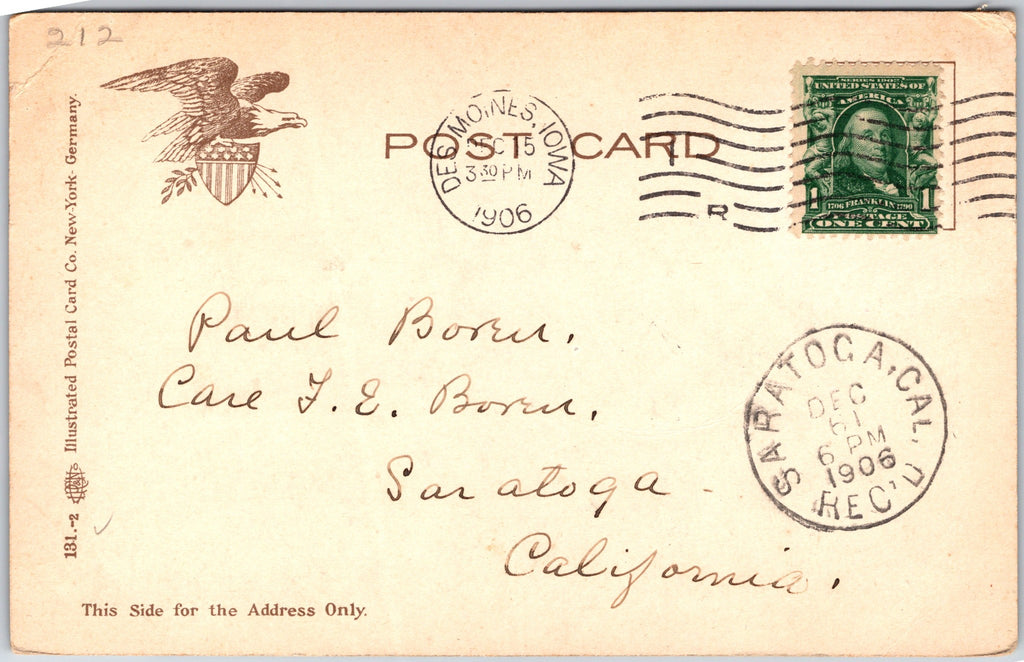 212
POST CARD
DES MOINES, IOWA
DEC 15
3 30 PM
1906
R
SERIES 1902
UNITED STATES OF
AMERICA
1 1706 FRANKLIN 1790 1
POSTAGE
ONE CENT
131.-2 Illustrated Postal Card Co. New-York - Germany.
Paul Boren.
Care F. E. Boren.
Saratoga -
California.
SARATOGA, CAL.
DEC
61
6 PM
1906
REC'D
This Side for the Address Only.